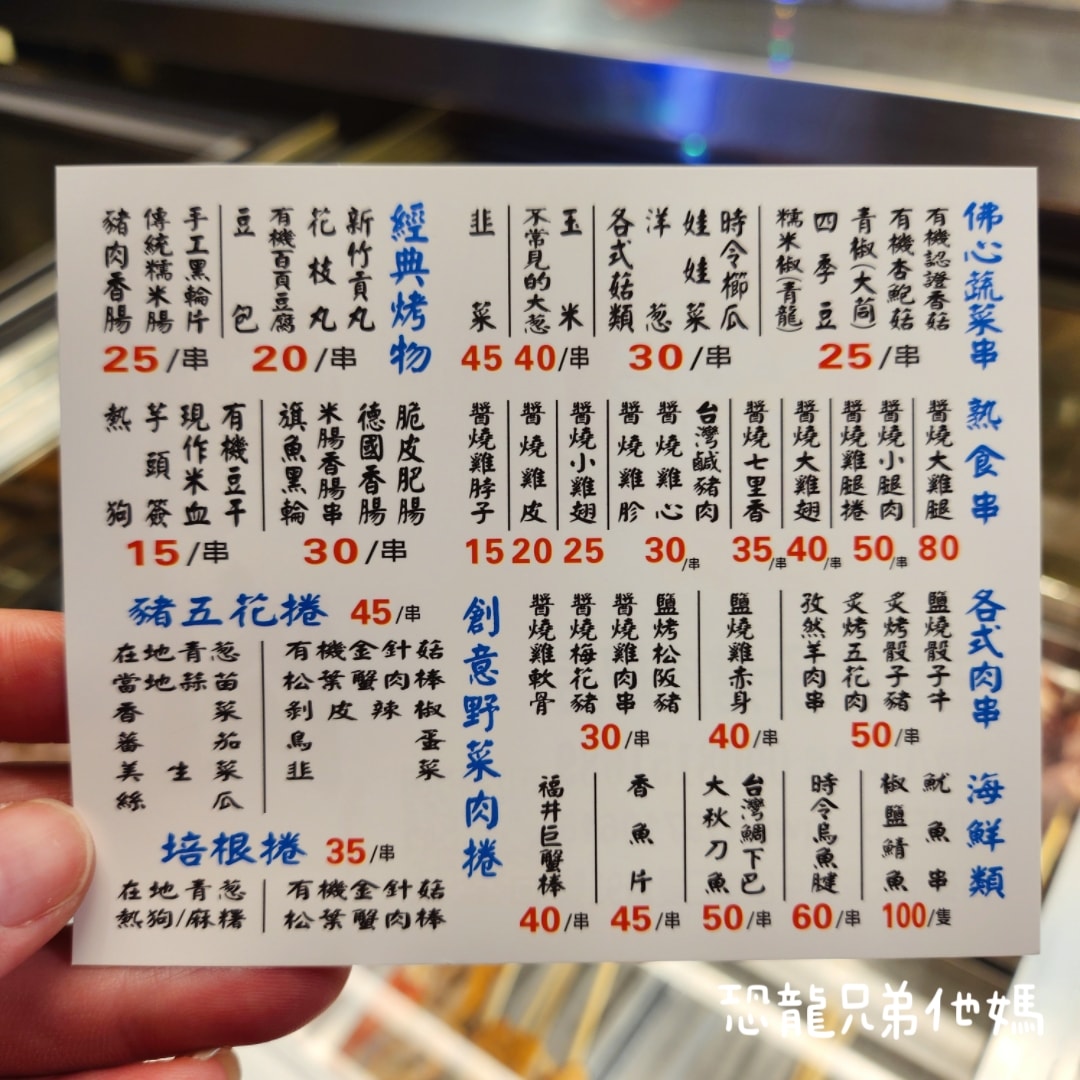 佛心蔬菜串
有機認證香菇
有機杏鮑菇
青椒(大筒)
四季豆
糯米椒(青龍)
25/串
時令櫛瓜
娃娃菜
洋蔥
各式菇類
30/串
玉米
不常見的大蔥
40/串
韭菜
45
經典烤物
新竹貢丸
花枝丸
有機百頁豆腐
豆包
20/串
手工黑輪片
傳統糯米腸
豬肉香腸
25/串
脆皮肥腸
德國香腸
米腸香腸串
旗魚黑輪
30/串
有機豆干
現作米血
芋頭簽
熱狗
15/串
熟食串
醬燒大雞腿
80
醬燒小腿肉
醬燒雞腿捲
50/串
醬燒大雞翅
40/串
醬燒七里香
35/串
台灣鹹豬肉
醬燒雞心
醬燒雞胗
30/串
醬燒小雞翅
25
醬燒雞皮
20
醬燒雞脖子
15
各式肉串
鹽燒骰子牛
炙烤骰子豬
炙烤五花肉
孜然羊肉串
50/串
鹽燒雞赤身
40/串
鹽烤松阪豬
醬燒雞肉串
醬燒梅花豬
醬燒雞軟骨
30/串
海鮮類
魷魚串
椒鹽鯖魚
100/隻
時令烏魚腱
60/串
台灣鯛下巴
大秋刀魚
50/串
香魚片
45/串
福井巨蟹棒
40/串
創意野菜肉捲
豬五花捲 45/串
有機金針菇
松葉蟹肉棒
剝皮辣椒
鳥蛋
韭菜
在地青蔥
當地蒜苗
香菜
蕃茄
美生菜
絲瓜
培根捲 35/串
有機金針菇
松葉蟹肉棒
在地青蔥
熱狗/麻糬
恐龍兄弟他媽